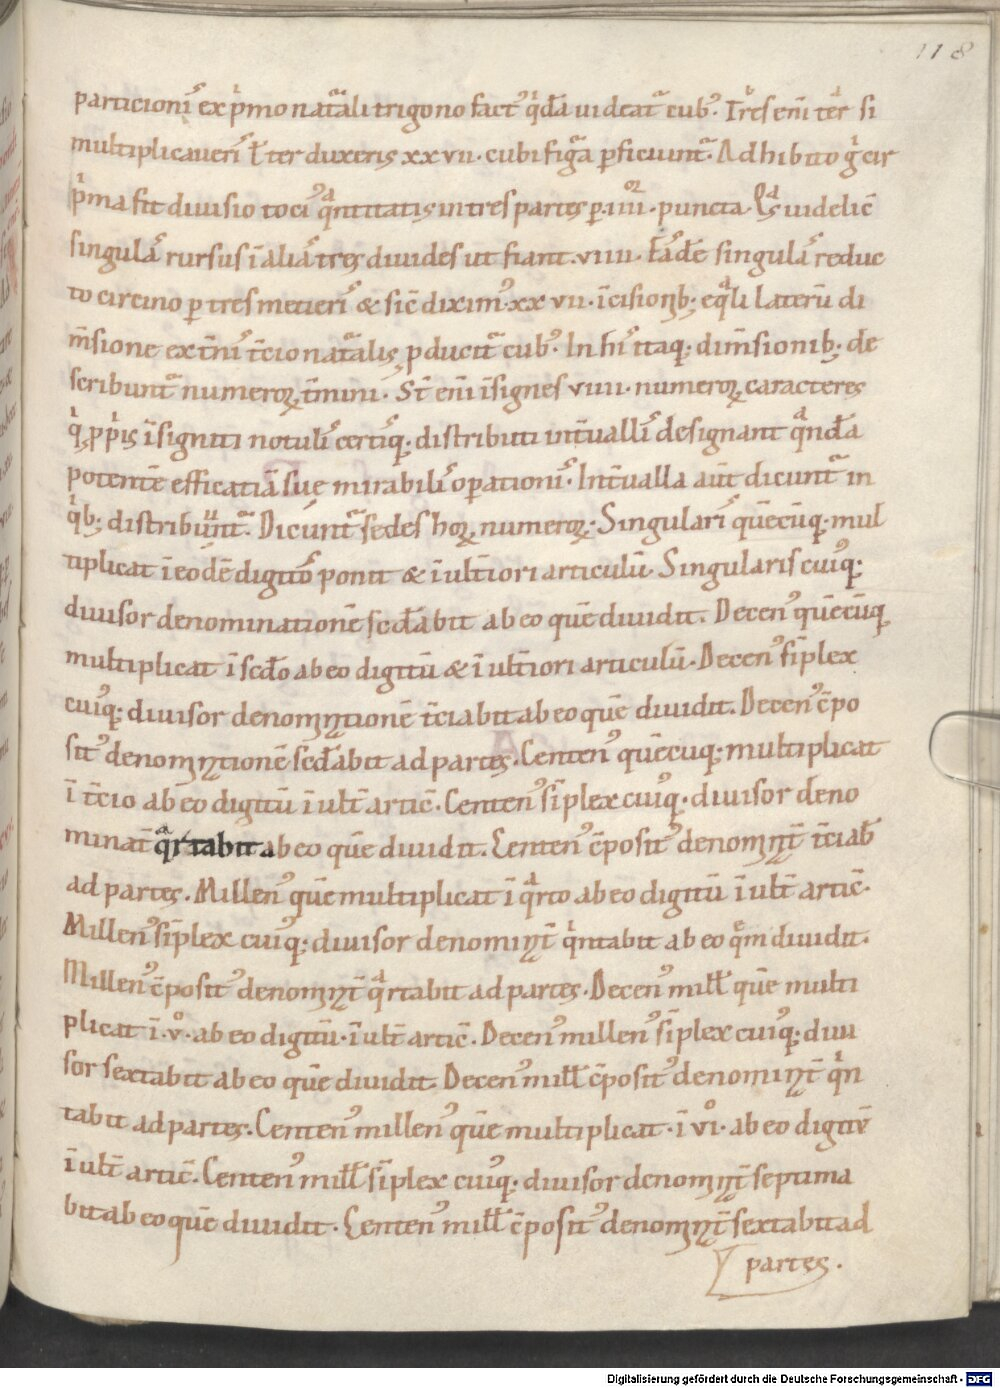 118
particioniꝰ ex p̍mo natᷓali trigono factꝰ q̍dā uideatᷓ cubꝰ. Tres eni᷒ ter si
multiplicaueri᷒ ł ter duxeris xx vii. cubi figᷓa ꝑficiuntᷓ. Adhibito g̍ cir
p̍ma fit diuisio tociꝰ qᷓntitatis in tres partes ꝑ .iiii. puncta. Qᷓs uidelic̄
singulaꝰ rursus ī aliaꝰ tres diuides ut fiant .viiii. Eade᷒ singulaꝰ reduc
to circino ꝑ tres metieriꝰ & sic̄ diximꝰ .xx vii. īcisionib; eqᷓli laterū di
m̄sione ex t̄niꝰ t̄cio natᷓalis ꝓducitᷓ cubꝰ. In hiꝰ itaq; dim̄sionib; de
scribuntᷓ numeroꝝ t̄mini. St̄ eni᷒ īsignes viiii. numeroꝝ caracteres
q̍ ꝓp̍is īsigniti notuliꝰ certisq; distributi int̄ualliꝰ designant qᷓndā
potentē efficatiā suę mirabiliꝰ oꝑationiꝰ. Int̄ualla aūt dicuntᷓ in
q̍b; distribuuntᷓ. Dicuntᷓ sedes hoꝝ numeroꝝ. Singulariꝰ quēcūq; mul
tiplicat ī eodē digitoꝰ ponit & ī ult̄iori articulū. Singularis cuiꝰq;
diuisor denominationē scd̄abit ab eo quē diuidit. Decenꝰ quēcūq;
multiplicat ī scd̄o ab eo digitū & ī ult̄iori articulū. Decenꝰ sīplex
cuiꝰq; diuisor denom̄tionē t̄ciabit ab eo quē diuidit. Decenꝰ c̄po
sitꝰ denom̄tionē scd̄abit ad partes. Centenꝰ quēcuq; multiplicat
ī t̄cio ab eo digitū ī ult̄ artic̄. Centenꝰ sīplex cuiꝰq; diuisor deno
minat̄ qᷓrtabit ab eo quē diuidit. Centenꝰ c̄positꝰ denom̄t̄ t̄ciab̄
ad partes. Millenꝰ quē multiplicat ī qᷓrto ab eo digitū ī ult̄ artic̄.
Millenꝰ sīplex cuiꝰq; diuisor denomint̄ q̍ntabit ab eo qͤm diuidit.
Millenꝰ c̄positꝰ denom̄t̄ qᷓrtabit ad partes. Decenꝰ mill̄ quē multi
plicat ī .vͦ. ab eo digitū. ī ult̄ artic̄. Decenꝰ millenꝰ sīplex cuiꝰq; diui
sor sextabit ab eo quē diuidit. Decenꝰ mill̄ c̄positꝰ denomint̄ q̍n
tabit ad partes. Centenꝰ millenꝰ quē multiplicat .ī viͦ. ab eo digitū
ī ult̄ artic̄. Centenꝰ mill̄ sīplex cuiꝰq; diuisor denom̄t̄ septima
bit ab eo quē diuidit. Centenꝰ mill̄ c̄positꝰ denom̄t̄ sextabit ad
partes.
Digitalisierung gefördert durch die Deutsche Forschungsgemeinschaft - DFG